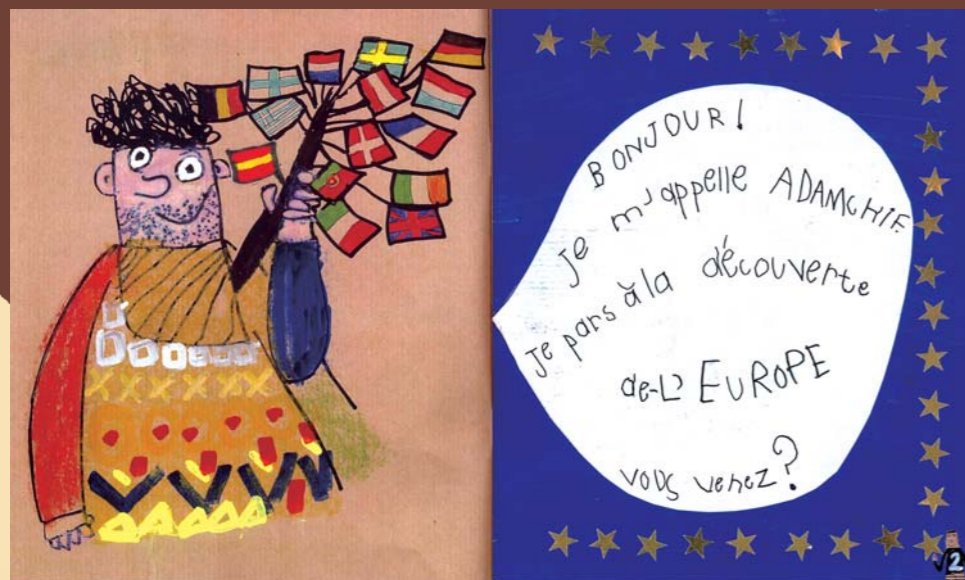 BONJOUR!
Je m'appelle ADAMCHIF.
Je pars à la découverte
de-L' EUROPE
vous venez?
√2